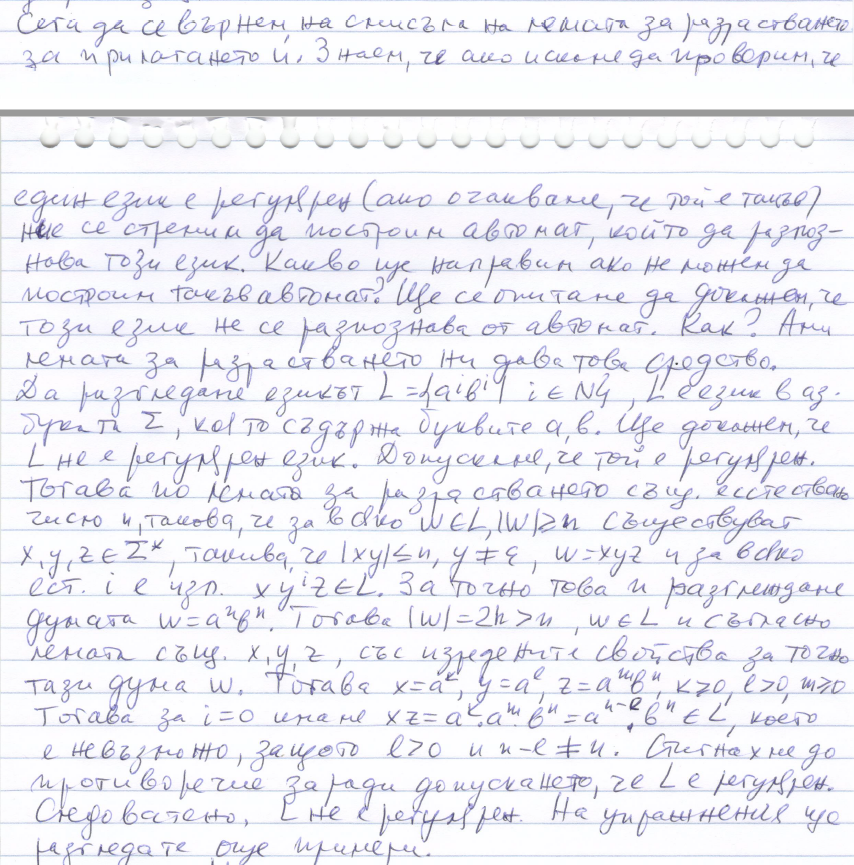 Сега да се върнем на смисъла на лемата за разрастването
за прилагането ѝ. Знаем, че ако искаме да проверим, че
един език е регулярен (ако очакваме, че той е такъв)
ние се стремим да построим автомат, който да разпоз-
нава този език. Какво ще направим ако не можем да
построим такъв автомат? Ще се опитаме да докажем, че
този език не се разпознава от автомат. Как? Ами
лемата за разрастването ни дава това средство.
Да разгледаме езикът L = {aⁱbⁱ | i ∈ N}, L е език в аз-
буката Σ, която съдържа буквите a, b. Ще докажем, че
L не е регулярен език. Допускаме, че той е регулярен.
Тогава по лемата за разрастването същ. естествено
число n, такова, че за всяко w∈L, |w|≥n съществуват
x, y, z ∈ Σ*, такива, че |xy|≤n, y≠ε, w=xyz и за всяко
ест. i е изп. xyⁱz∈L. За точно това n разглеждаме
думата w=aⁿbⁿ. Тогава |w|=2n>n, w∈L и съгласно
лемата същ. x, y, z, със изредените свойства за точно
тази дума w. Тогава x=aᵏ, y=aˡ, z=aᵐbⁿ, k≥0, l>0, m≥0
Тогава за i=0 имаме xz=aᵏ.aᵐ.bⁿ=aⁿ⁻ˡ.bⁿ∈L, което
е невъзможно, защото l>0 и n-l≠n. Стигнахме до
противоречие заради допускането, че L е регулярен.
Следователно, L не е регулярен. На упражнения ще
разгледате още примери.